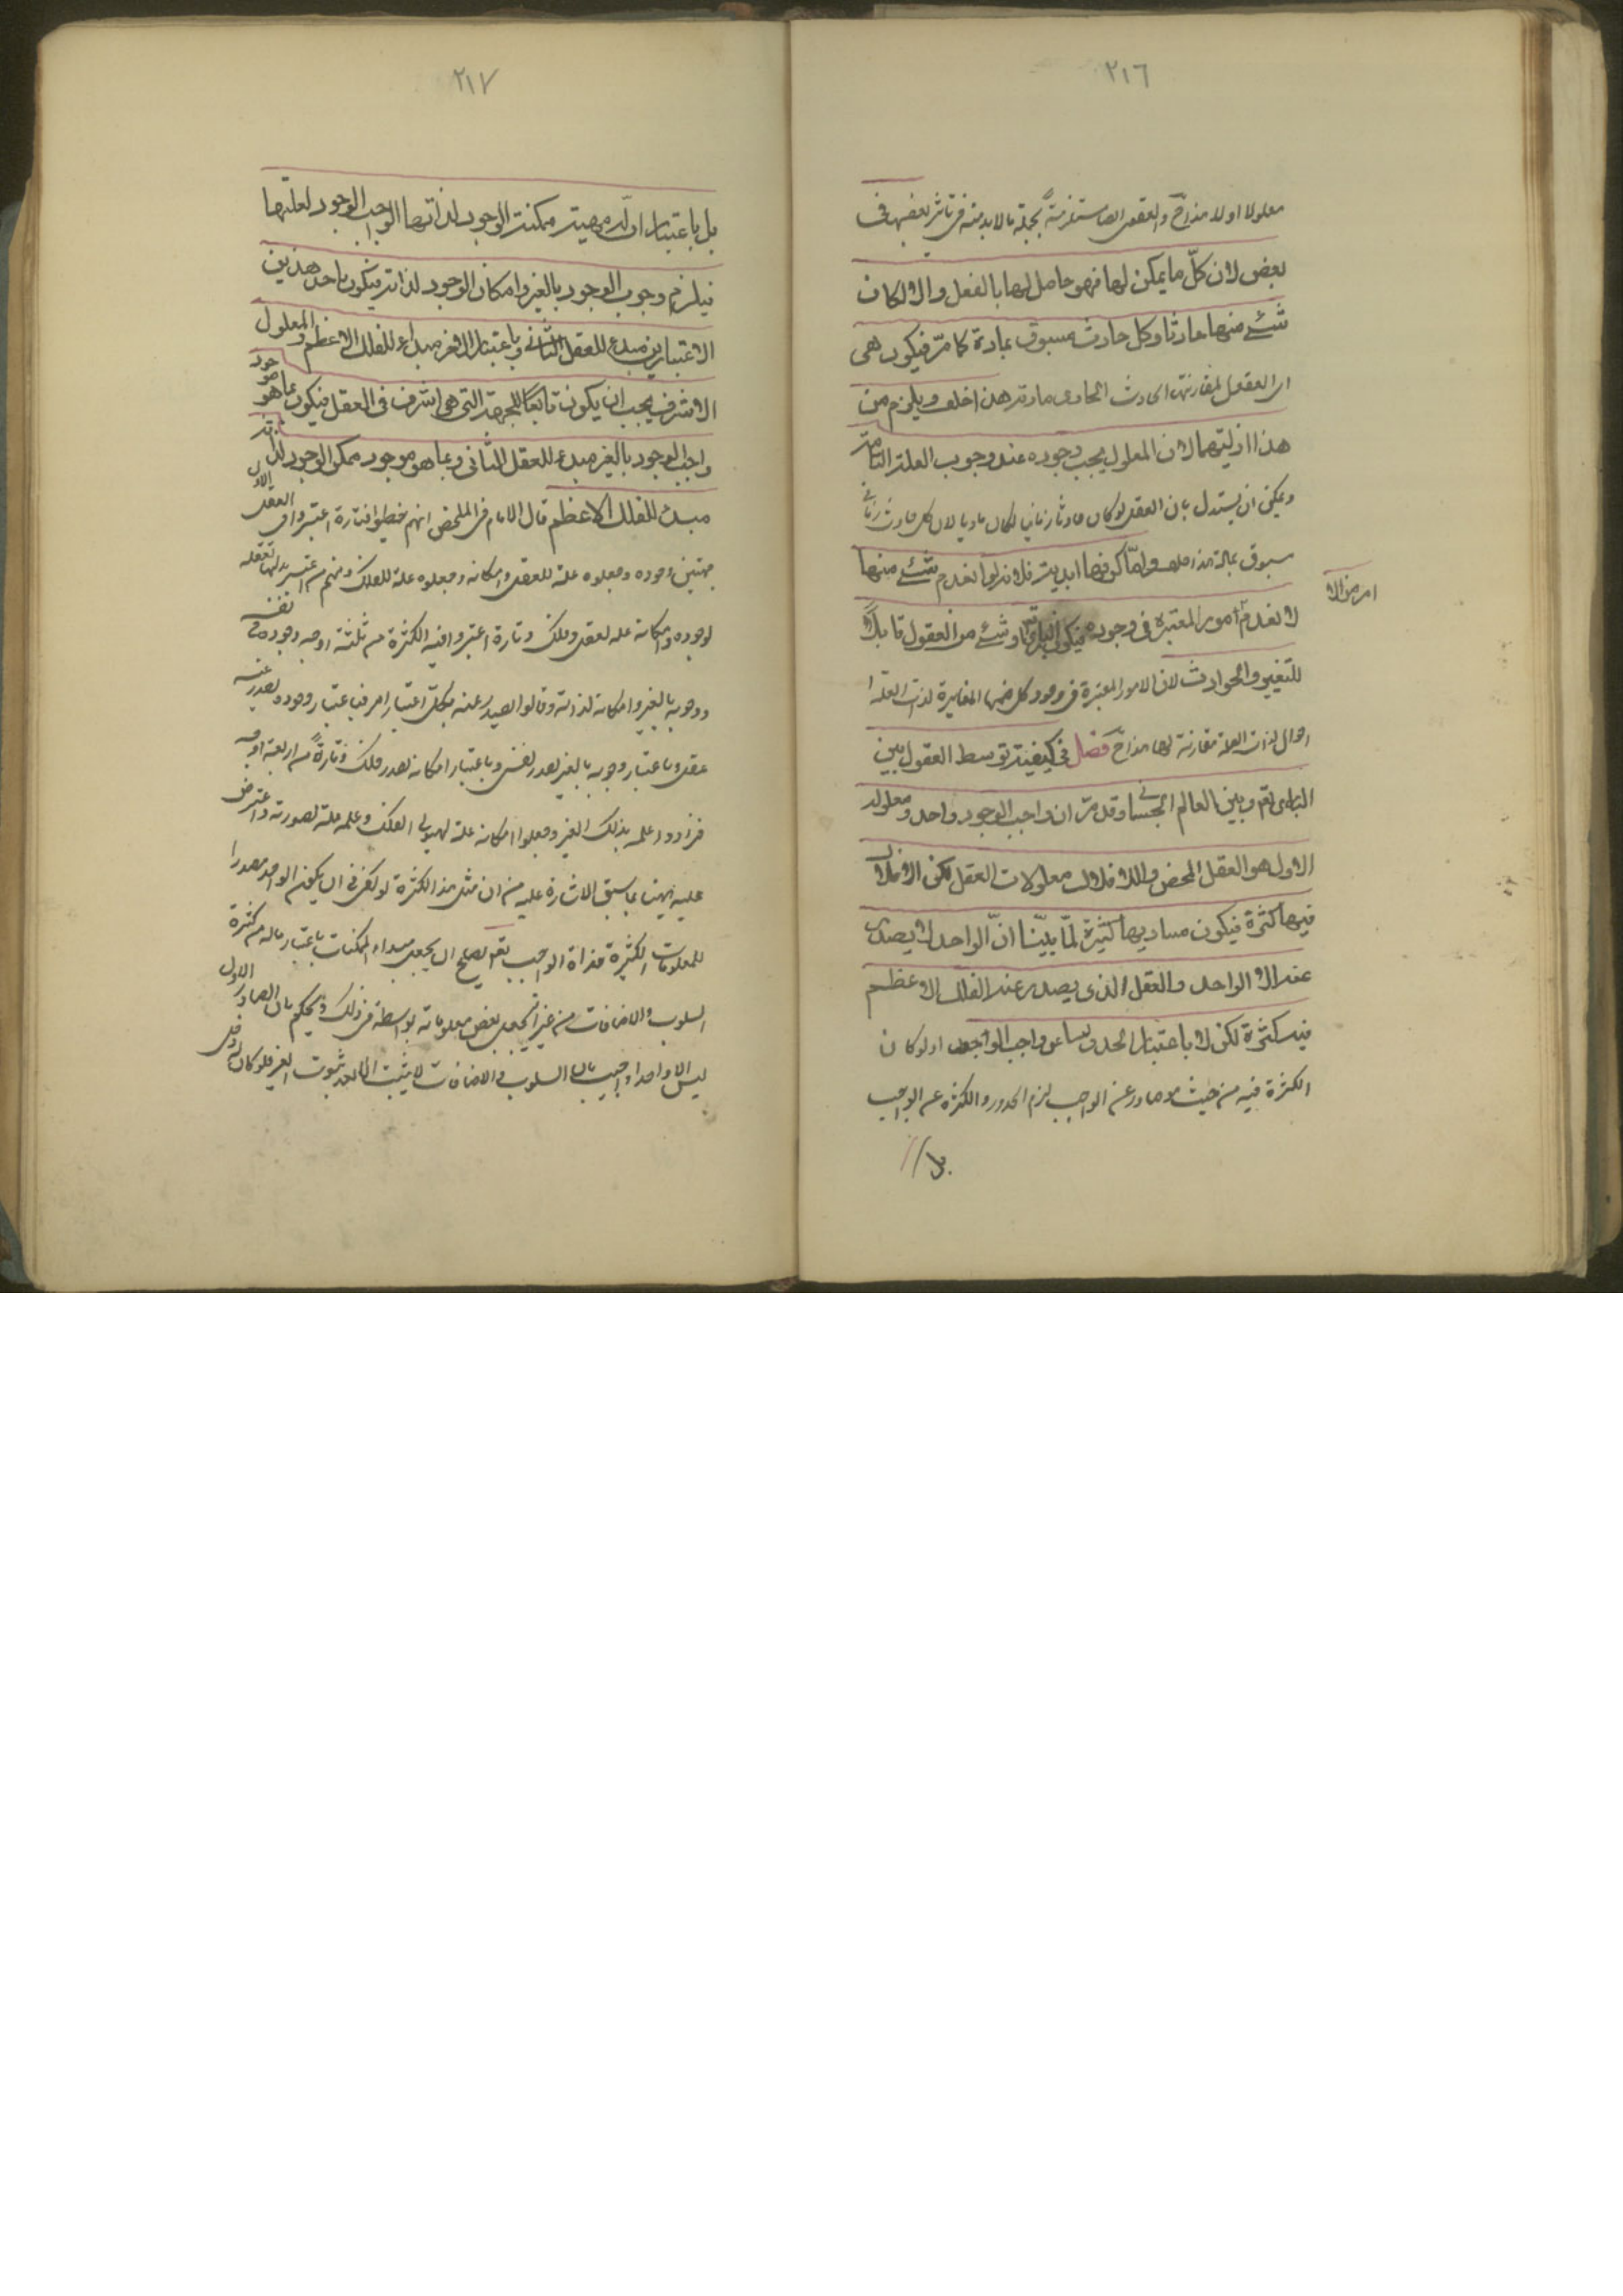 ٢١٦
معلولا اولا هذا خ والعقول ايضا مستلزمة بجملة ما لا بد منه فى تاثير بعضها فى
بعض لان كل ما يمكن لها فهو حاصل لها بالفعل والا لكان
شئ منها حادثا وكل حادث مسبوق بمادة كما مر فيكون هى
اى العقول لمقارنتها الحادث المادى مادية هذا خلف ويلزم من
هذا ازليتهما لان المعلول يجب وجوده عند وجوب العلة التامة
ويمكن ان يستدل بان العقل لو كان حادثا زمانيا لكان ماديا لان كل حادث زمانى
مسبوق بمادة هذا خلف واما كونها ابدية فلانه لو انعدم شئ منها
لانعدم امور المعتبرة فى وجوده فيكون البارى او شئ من العقول قابلا
امر من الا
للتغير والحوادث لان الامور المعتبرة فى وجود كل منها المغايرة لذات العلة
احوال لذات العلة مقارنة لها هذا خ فصل فى كيفية توسط العقول بين
البارى تعم وبين العالم الجسمانى وقد مر ان واجب الوجود واحد ومعلوله
الاول هو العقل المحض والافلاك معلولات العقل لكن الافلاك
فيها كثرة فيكون مباديها كثيرة لما بينا ان الواحد لا يصدر
عنه الا الواحد والعقل الذى يصدر عنه الفلك الاعظم
فيه كثرة لكن لا باعتبار الصادر عن واجب الوجود اذ لو كان
الكثرة فيه من حيث هو صادر عن الواجب لزم الصدور والكثرة عن الواجب
بل
٢١٧
بل باعتبار ان له مهية ممكنة الوجود لذاتها الواجب الوجود لعلتها
فيلزم وجوب الوجود بالغير وامكان الوجود لذاته فيكون باحد هذين
الاعتبارين مبدء للعقل الثانى وباعتبار الاخر مبداء للفلك الاعظم والمعلول
الاشرف يجب ان يكون تابعا للجهة التى هى اشرف فى العقل فيكون بما هو موجود
واجب الوجود بالغير مبدء للعقل الثانى وبما هو موجود ممكن الوجود لذاته
مبدء للفلك الاعظم قال الامام فى الملخص انهم خبطوا فتارة اعتبروا فى العقل الاول
جهتين وجوده وجعلوه علة للعقل وامكانه وجعلوه علة للفلك ومنهم من اعتبر بدلهما تعقله
لوجوده وامكانه علة لعقل وفلك وتارة اعتبروا فيه الكثرة من ثلثة اوجه وجوده فى نفسه
ووجوبه بالغير وامكانه لذاته وقالوا يصدر عنه بكل اعتبار امر فباعتبار وجوده يصدر عنه
عقل وباعتبار وجوبه بالغير يصدر نفس وباعتبار امكانه يصدر فلك وتارة من اربعة اوجه
فزادوا علمه بذلك الغير وجعلوا امكانه علة لهيولى الفلك وعلمه علة لصورته واعترض
عليه ههنا بما سبق الاشارة عليه من ان مثل هذا الكثرة لو كفى فى ان يكون الواحد مصدرا
للمعلولات الكثيرة فذاة الواجب تعم يصلح ان يجعل مبداء للممكنات باعتبار ماله من كثرة
السلوب والاضافات من غير ان يجعل بعض معلولاته بواسطة فى ذلك ويحكم بان الصادر الاول
ليس الا واحدا واجيب بان السلوب والاضافات لا يثبت الا بعد ثبوت الغير فلو كان له دخل